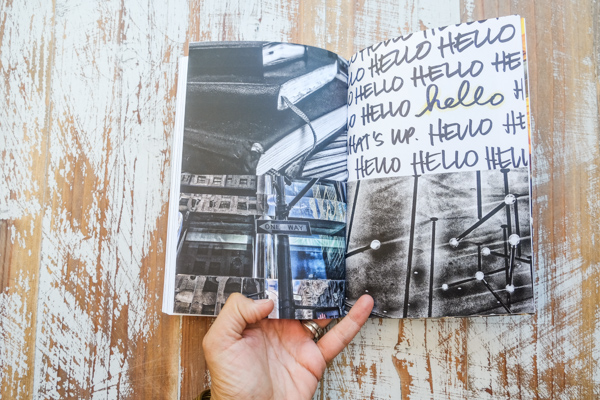 ONE WAY
HELLO
HELLO HELLO
HELLO HELLO HE
HELLO hello H
HAT'S UP. HELLO HE
HELLO HELLO HELL